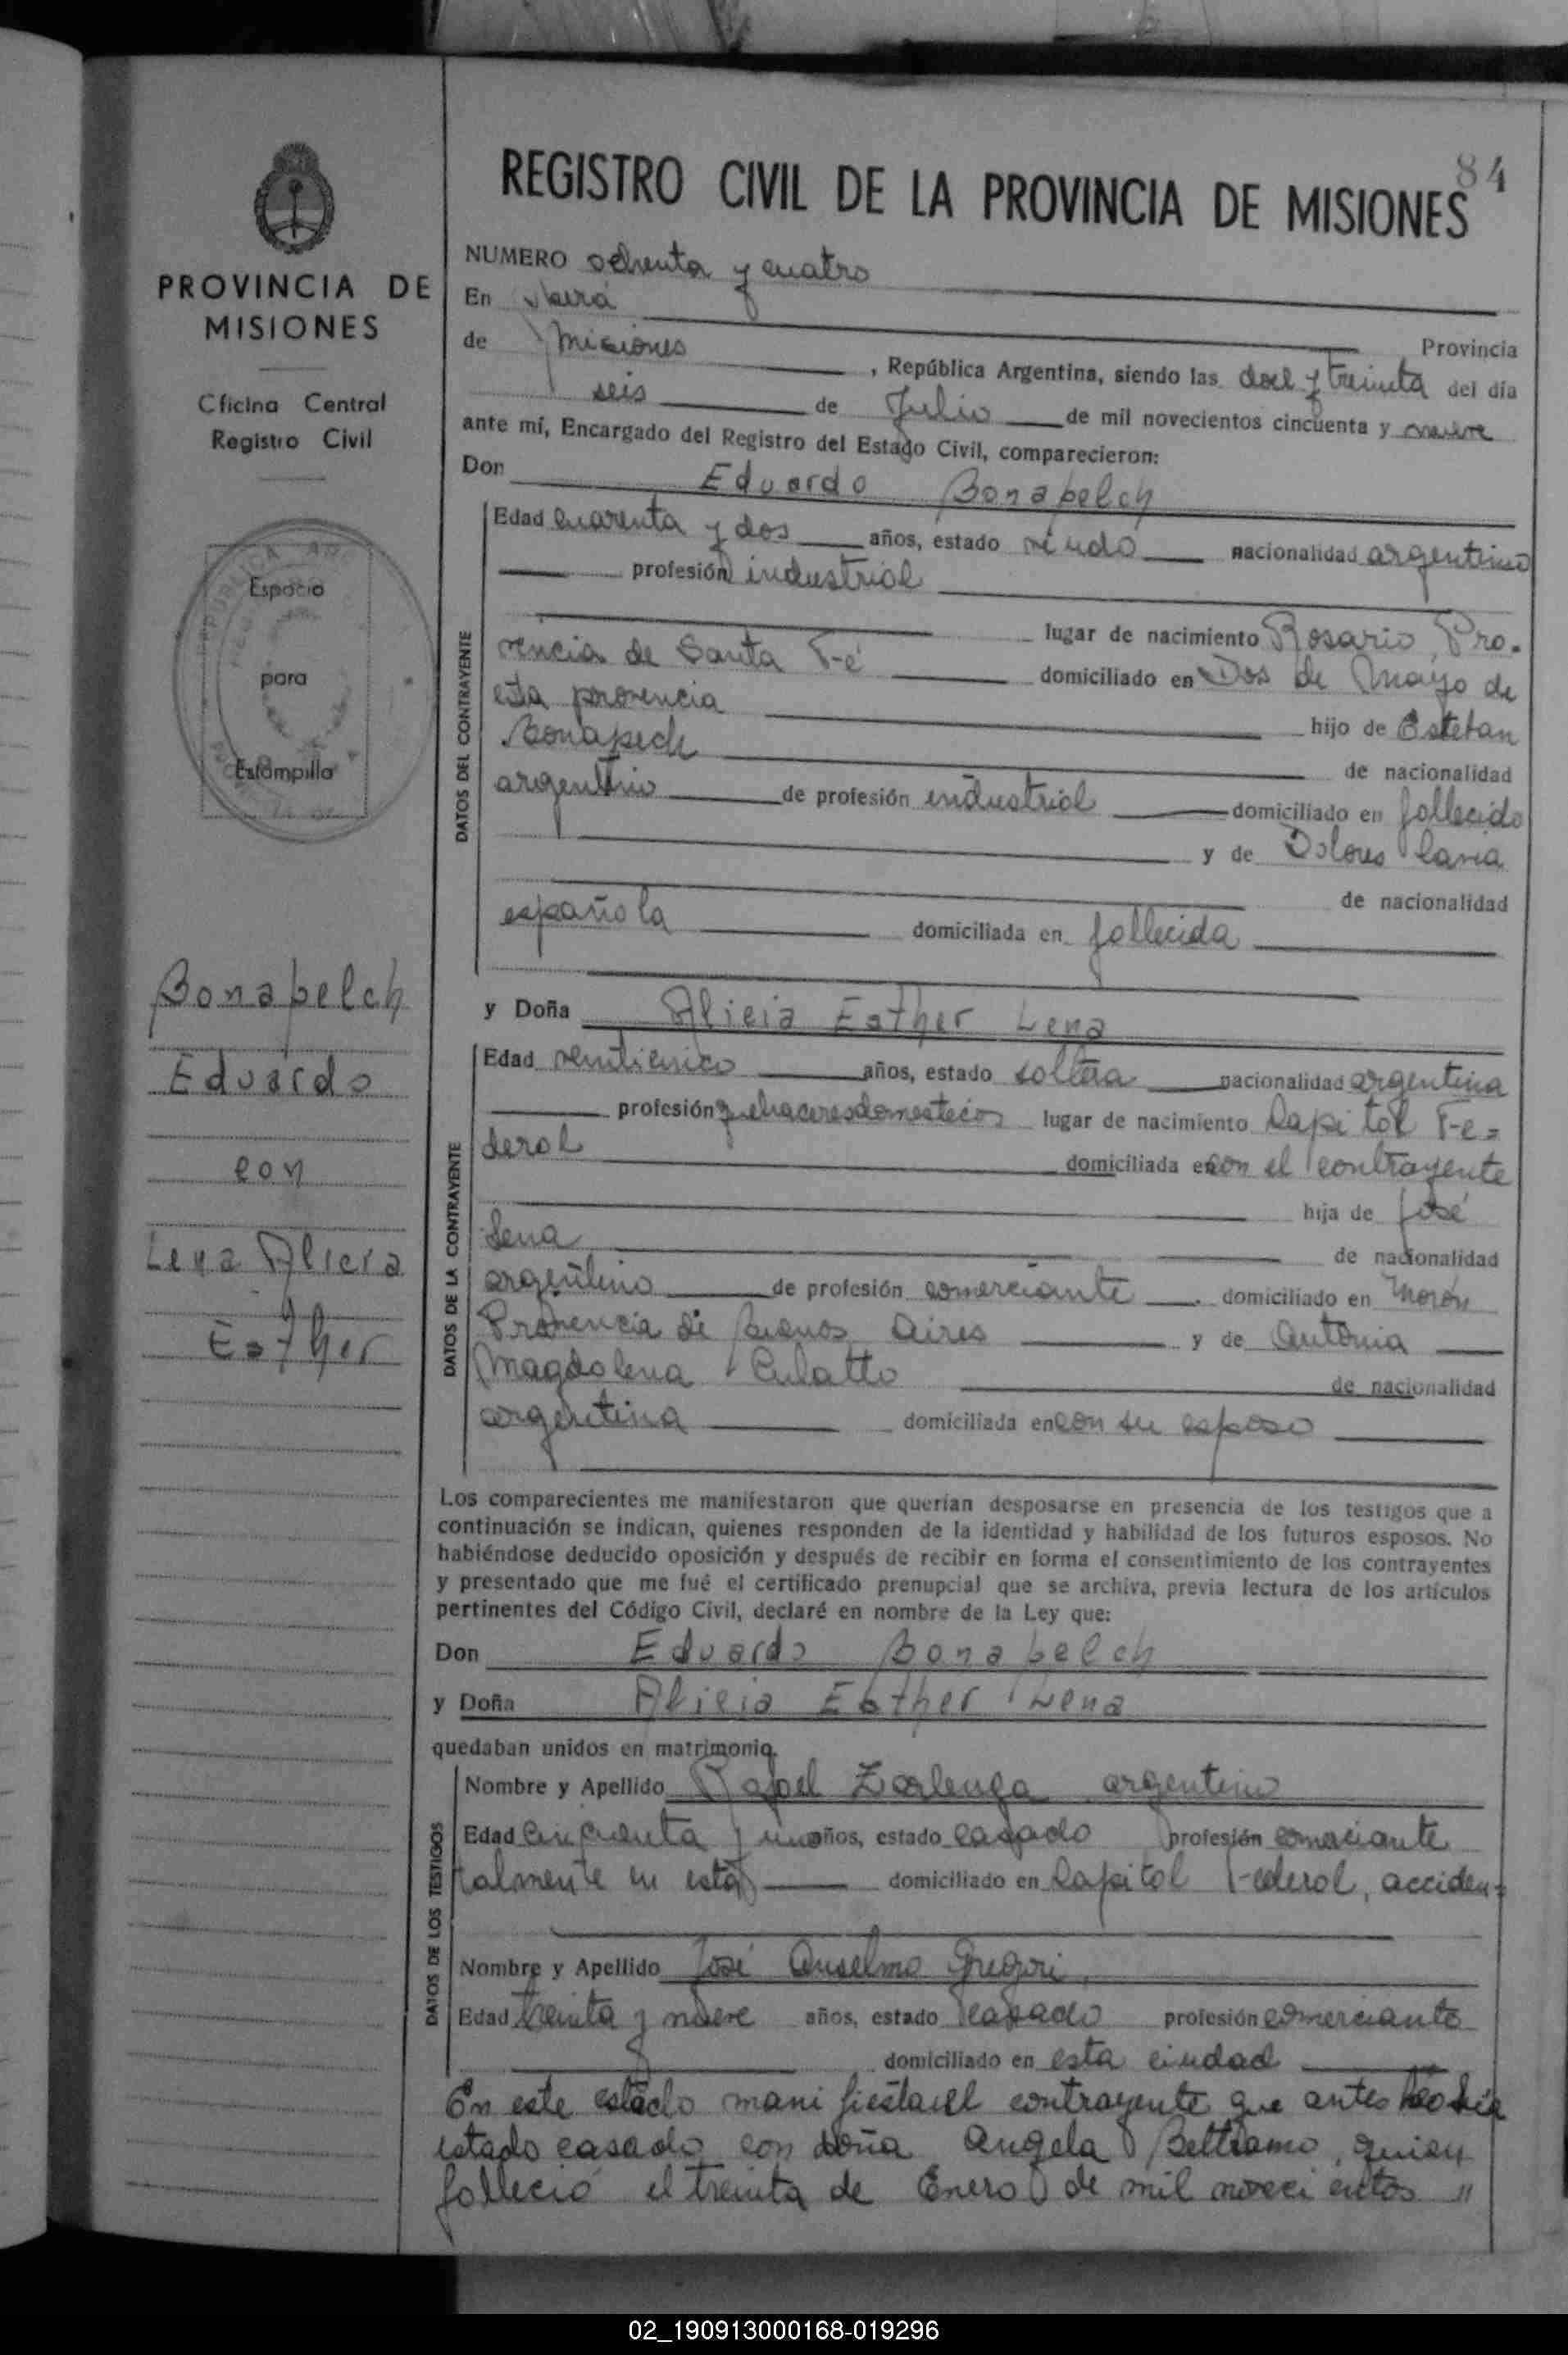 84
REGISTRO CIVIL DE LA PROVINCIA DE MISIONES
PROVINCIA DE
MISIONES
Oficina Central
Registro Civil
Espacio
para
Estampilla
Bonapelch
Eduardo
con
Lena Alicia
Esther
NUMERO ochenta y cuatro
En
Provincia
de Misiones, República Argentina, siendo las doce y treinta del día
seis de Julio de mil novecientos cincuenta y nueve
ante mí, Encargado del Registro del Estado Civil, comparecieron:
Don Eduardo Bonapelch
DATOS DEL CONTRAYENTE
Edad cuarenta y dos años, estado viudo nacionalidad argentino
profesión industrial
lugar de nacimiento Rosario, Pro-
vincia de Santa Fé domiciliado en Dos de Mayo de
esta provincia hijo de Esteban
de nacionalidad
argentino de profesión industrial domiciliado en fallecido
y de Dolores
de nacionalidad
española domiciliada en fallecida
y Doña Alicia Esther Lena
DATOS DE LA CONTRAYENTE
Edad veinticinco años, estado soltera nacionalidad argentina
profesión quehaceres domesticos lugar de nacimiento Capital Fe=
deral domiciliada en con el contrayente
hija de José
Lena de nacionalidad
argentino de profesión comerciante domiciliado en Morón
Provincia de Buenos Aires y de Antonia
Magdalena Culatto de nacionalidad
argentina domiciliada en con su esposo
Los comparecientes me manifestaron que querían desposarse en presencia de los testigos que a
continuación se indican, quienes responden de la identidad y habilidad de los futuros esposos. No
habiéndose deducido oposición y después de recibir en forma el consentimiento de los contrayentes
y presentado que me fué el certificado prenupcial que se archiva, previa lectura de los artículos
pertinentes del Código Civil, declaré en nombre de la Ley que:
Don Eduardo Bonapelch
y Doña Alicia Esther Lena
quedaban unidos en matrimonio.
DATOS DE LOS TESTIGOS
Nombre y Apellido Rafael Zarlenga argentino
Edad cincuenta y un años, estado casado profesión comerciante
talmente en esta domiciliado en Capital Federal, acciden=
Nombre y Apellido José Anselmo Gregori,
Edad treinta y nueve años, estado casado profesión comerciante
domiciliado en esta ciudad
En este estado manifiesta el contrayente que antes había
estado casado con doña Angela Beltramo, quien
falleció el treinta de Enero de mil novecientos "
02_190913000168-019296